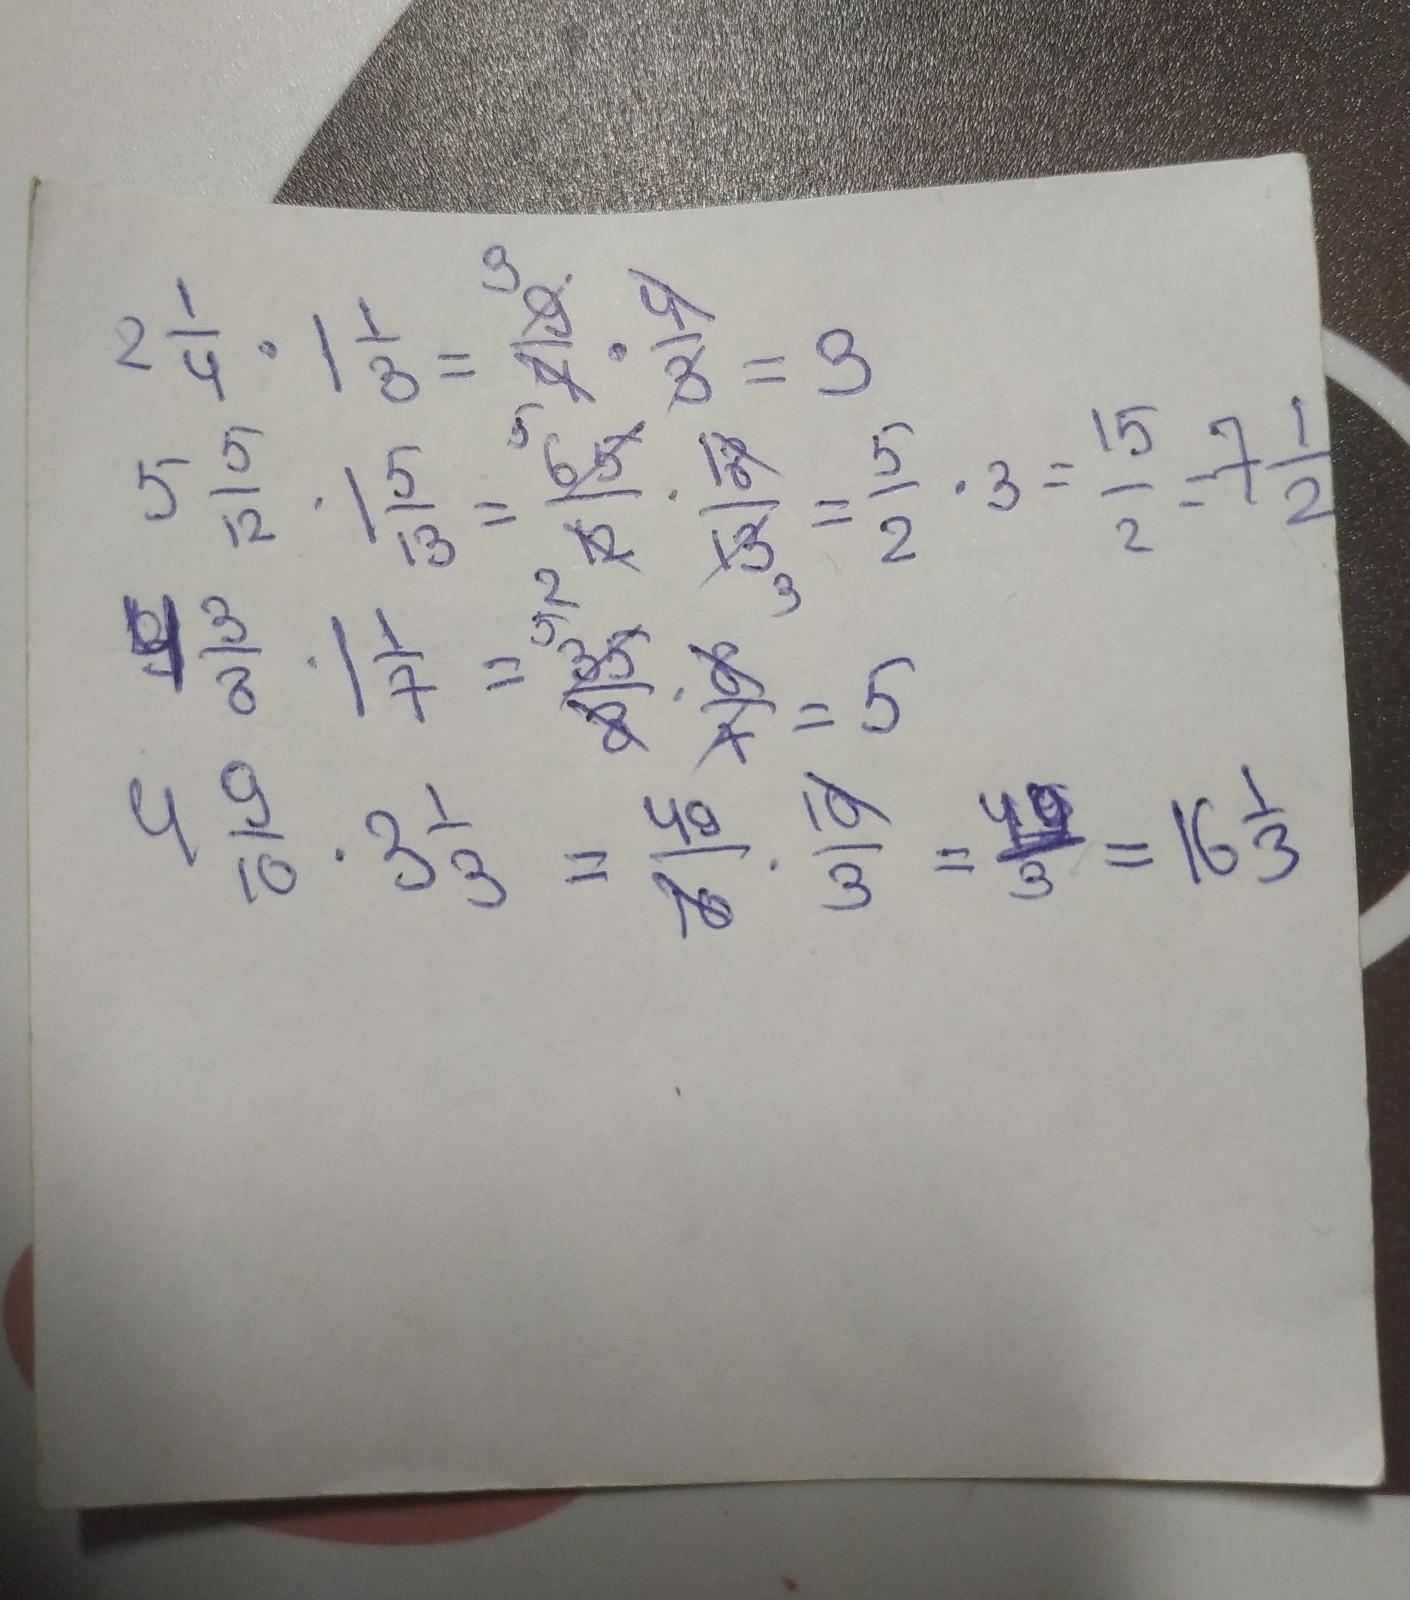 2 1/4 · 1 1/3 = 3 9/4 · 4/3 = 3
5 5/12 · 1 5/13 = 5 65/12 · 18/13 = 5/2 · 3 = 15/2 = 7 1/2
2 3
4 3/8 · 1 1/7 = 5 35/8 · 8/7 = 5
4 9/10 · 3 1/3 = 49/10 · 10/3 = 49/3 = 16 1/3